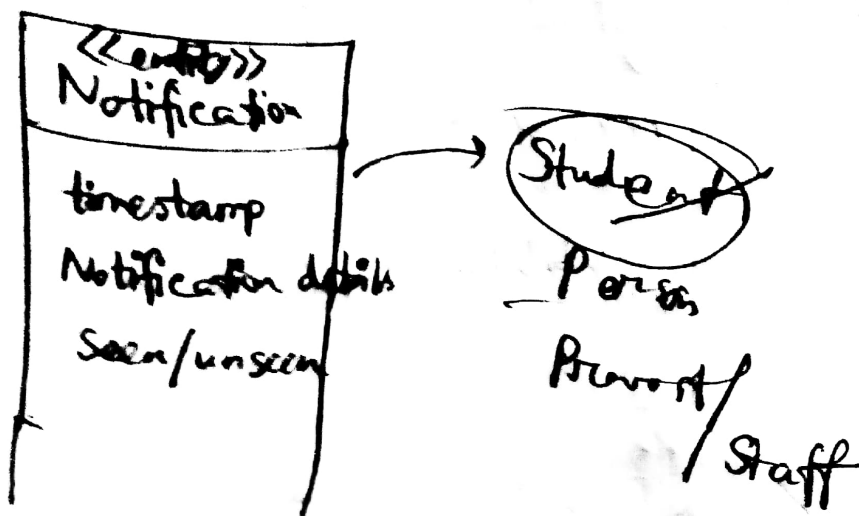 <<entity>>
Notification
timestamp
Notification details
seen/unseen
Student
Person
Provost/
Staff